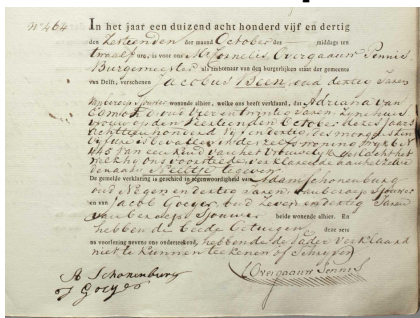 N° 464
In het jaar een duizend acht honderd vijf en dertig
den zestienden der maand October des middags ten
twaalf ure, is voor ons Mr Cornelis Overgaauw Pennis
Burgemeester als ambtenaar van den burgerlijken stand der gemeente
van Delft, verschenen Jacobus Been, oud dertig Jaren
wonende alhier, welke ons heeft verklaard, dat Adriana van
oud en twintig Jaren, zijne huis
vrouw op den October dezes Jaars
achttienhonderd vijf en dertig, des morgens ten
vijf ure is bevallen in derzelver woning Wijk N
van een kind van het Vrouwelijk geslacht het
welk hij ons voorstelde verklarende aan hetzelve
te geven
De gemelde verklaring is geschied in tegenwoordigheid van Adam Schonenburg
oud Negen en dertig Jaren, van beroep Sjouwer
en van Jacob Goeyer, oud zeven en dertig Jaren
van beroep Sjouwer beide wonende alhier. En
hebben de beide Getuigen, deze acte
na voorlezing nevens ons onderteekend, hebbende de Vader verklaard
niet te kunnen teekenen of schrijven
A Schonenburg
J Goeyer
Overgaauw Pennis